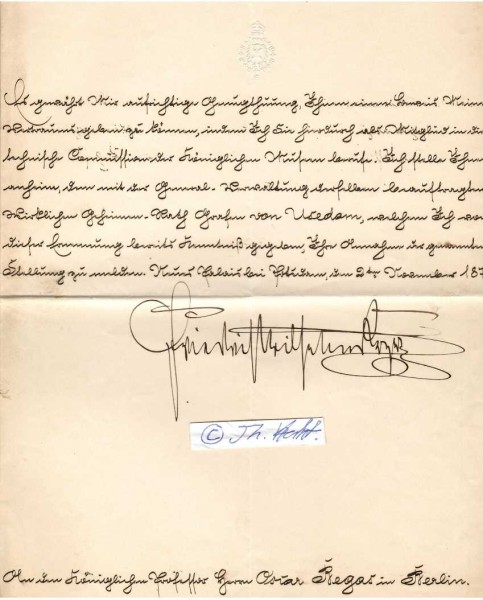 Es gewährt Mir aufrichtige Genugthuung, Ihnen einen Beweis Meines
Vertrauens geben zu können, indem Ich Sie hierdurch als Mitglied in die
technische Commission der Königlichen Museen berufe. Ich stelle Ihnen
anheim, dem mit der General-Verwaltung derselben beauftragten
Wirklichen Geheimen-Rath Grafen von Usedom, welchem Ich von
dieser Ernennung bereits Kenntniß gegeben, Ihre Annahme der genannten
Stellung zu melden. Neues Palais bei Potsdam, den 2ten November 187
Friedrich Wilhelm Kprz
© Th. Hecht.
An den Königlichen Professor Herrn Oscar Begas in Berlin.